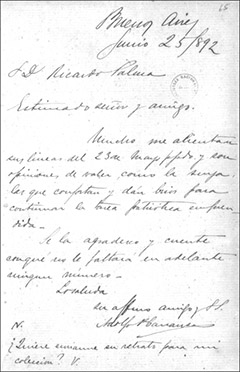 65
Buenos Aires
Junio 25/892
S D Ricardo Palma
Estimado señor y amigo.
Mucho me alientan
sus líneas del 23 de Mayo ppdo. y son
opiniones de valer como la suya
las que confortan y dan bríos para
continuar la tarea patriótica empren
dida.
Se la agradezco y cuente
conque no le faltará en adelante
ningun número.
Lo saluda
su affmo amigo y S.S.
Adolfo P Carranza
N.
¿Quiere enviarme su retrato para mi
colección? V.